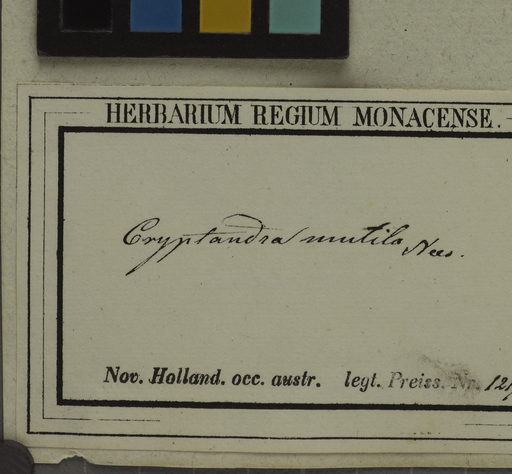 HERBARIUM REGIUM MONACENSE.
Cryptandra mutila Nees.
Nov. Holland. occ. austr. legt. Preiss. Nr.